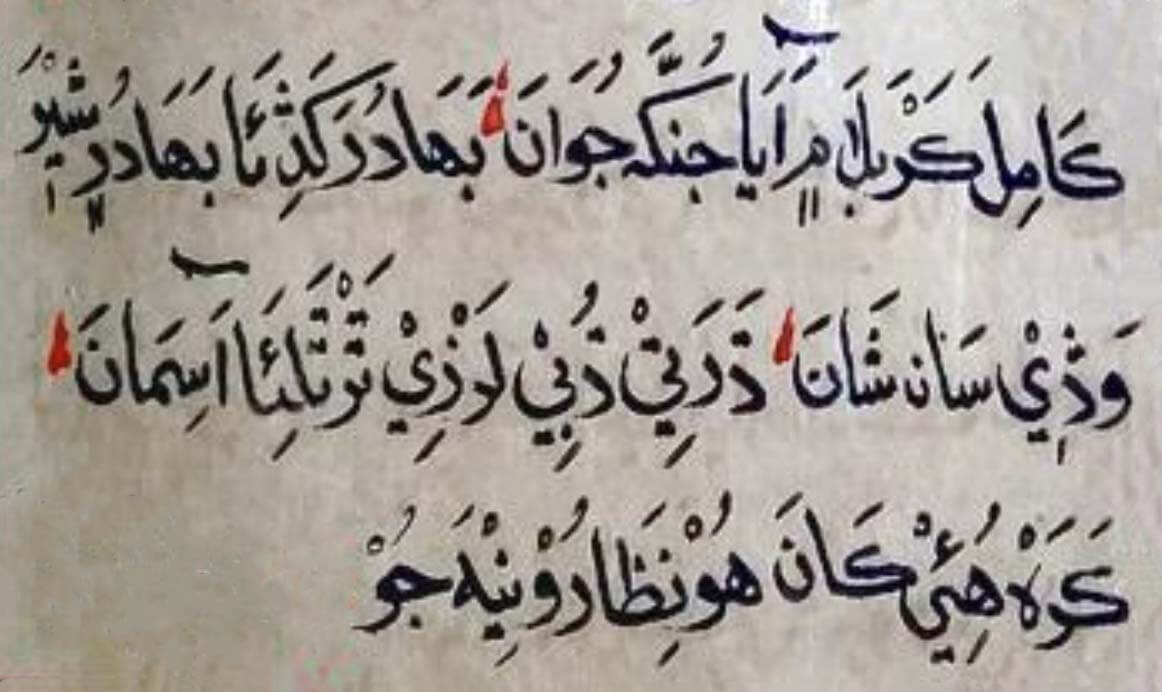 كَامِلَ كَرْبَلَا مٍ آيَا جُنڪَہ جُوَانَ؛ بَهَادُرَ كَڎِئَا بَهَادُرٍ شيْرَ
وَڎِيْ سَانہ شَانَ؛ ڌَرَتِيْ ڌُٻِيْ لَرْزِيْ ٿَرْٿَلِئَا آسِمَانَ؛
كَرَهْ هُئِيْ كَانَ هُوْ نِظَارُوْ نِيْہَ جوْ